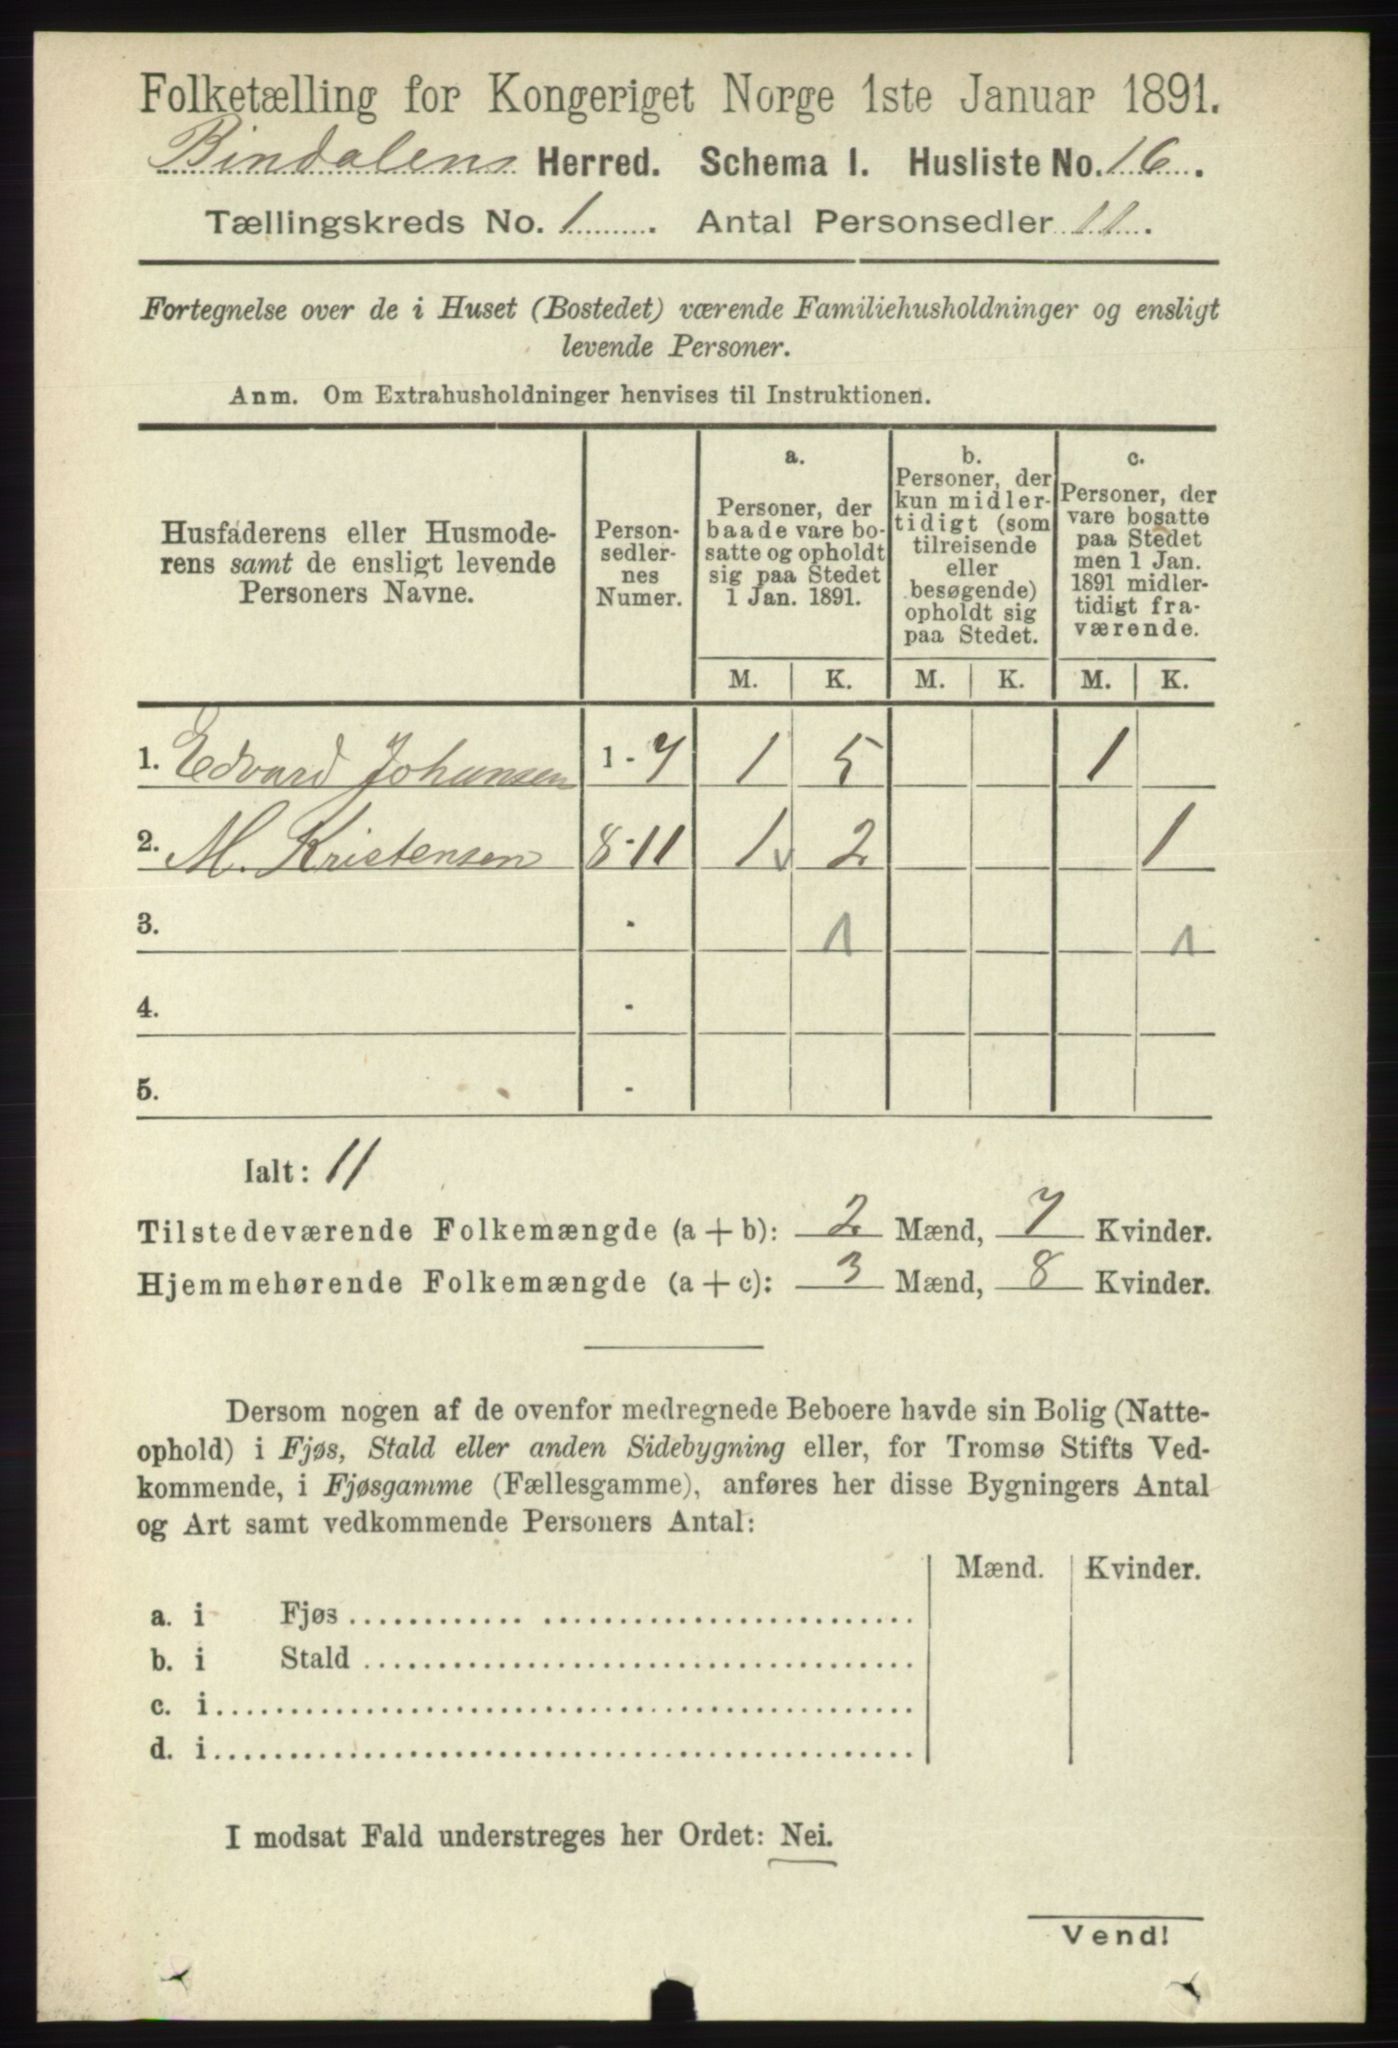 Folketælling for Kongeriget Norge 1ste Januar 1891.
Bindalens Herred. Schema I. Husliste No. 16.
Tællingskreds No. 1. Antal Personsedler 11.
Fortegnelse over de i Huset (Bostedet) værende Familiehusholdninger og ensligt
levende Personer.
Anm. Om Extrahusholdninger henvises til Instruktionen.
Husfaderens eller Husmode-
rens samt de ensligt levende
Personers Navne.
Person-
sedler-
nes
Numer.
a.
Personer, der
baade vare bo-
satte og opholdt
sig paa Stedet
1 Jan. 1891.
b.
Personer, der
kun midler-
tidigt (som
tilreisende
eller
besøgende)
opholdt sig
paa Stedet.
c.
Personer, der
vare bosatte
paa Stedet
men 1 Jan.
1891 midler-
tidigt fra-
værende.
M. K. M. K. M. K.
1. Edvard Johansen 1 - 7 1 5 1
2. M. Kristensen 8-11 1 v 2 1
3. - 1 1
4. -
5. -
Ialt: 11
Tilstedeværende Folkemængde (a + b): 2 Mænd, 7 Kvinder.
Hjemmehørende Folkemængde (a + c): 3 Mænd, 8 Kvinder.
Dersom nogen af de ovenfor medregnede Beboere havde sin Bolig (Natte-
ophold) i Fjøs, Stald eller anden Sidebygning eller, for Tromsø Stifts Ved-
kommende, i Fjøsgamme (Fællesgamme), anføres her disse Bygningers Antal
og Art samt vedkommende Personers Antal:
Mænd. Kvinder.
a. i Fjøs
b. i Stald
c. i
d. i
I modsat Fald understreges her Ordet: Nei.
Vend!